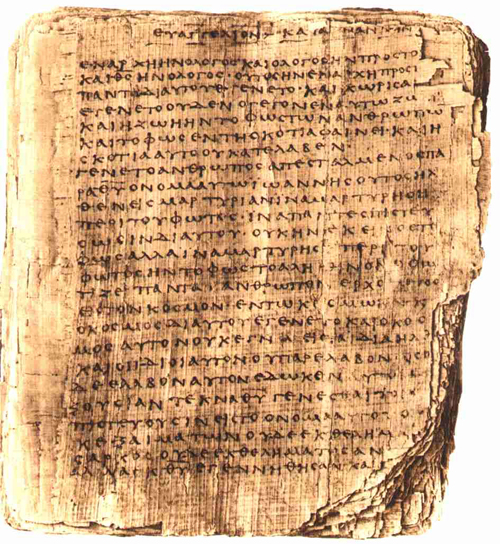 ΕΥΑΓΓΕΛΙΟΝ ΚΑΤΑ
ΕΝΑΡΧΗΗΝΟΛΟΓΟϹΚΑΙΟΛΟΓΟϹΗΝΠΡΟϹΤΟ
ΚΑΙΘϹΗΝΟΛΟΓΟϹΟΥΤΟϹΗΝΕΝΑΡΧΗΠΡΟϹ
ΠΑΝΤΑΔΙΑΥΤΟΥΕΓΕΝΕΤΟ·ΚΑΙΧΩΡΙϹΑ
ΕΓΕΝΕΤΟΟΥΔΕΝΟΓΕΓΟΝΕΝΑΥΤΩΖΩ
ΚΑΙΗΖΩΗΗΝΤΟΦΩϹΤΩΝΑΝΘΡΩΠΩ
ΚΑΙΤΟΦΩϹΕΝΤΗϹΚΟΤΙΑΦΑΙΝΕΙΚΑΙΗ
ϹΚΟΤΙΑΑΥΤΟΟΥΚΑΤΕΛΑΒΕΝ
ΕΓΕΝΕΤΟΑΝΘΡΩΠΟϹΑΠΕϹΤΑΛΜΕΝΟϹΠΑ
ΡΑΘΥΟΝΟΜΑΑΥΤΩΙΩΑΝΝΗϹΟΥΤΟϹΗΛ
ΘΕΝΕΙϹΜΑΡΤΥΡΙΑΝΙΝΑΜΑΡΤΥΡΗϹΗ
ΠΕΡΙΤΟΥΦΩΤΟϹΙΝΑΠΑΝΤΕϹΠΙϹΤΕΥ
ϹΩϹΙΝΔΙΑΥΤΟΥΟΥΚΗΝΕΚΕΙΝΟϹΤΟ
ΦΩϹΑΛΛΑΙΝΑΜΑΡΤΥΡΗϹΗΠΕΡΙΤΟΥ
ΦΩΤΟϹΗΝΤΟΦΩϹΤΟΑΛΗΘΙΝΟΝΟΦΩ
ΤΙΖΕΙΠΑΝΤΑΑΝΘΡΩΠΟΝΕΡΧΟΜΕΝΟΝ
ΕΙϹΤΟΝΚΟϹΜΟΝΕΝΤΩΚΟϹΜΩΗΝ
ΟΚΟϹΜΟϹΔΙΑΥΤΟΥΕΓΕΝΕΤΟΚΑΙΟΚΟϹ
ΜΟϹΑΥΤΟΝΟΥΚΕΓΝΩΕΙϹΤΑΙΔΙΑΗΛ
ΚΑΙΟΙΙΔΙΟΙΑΥΤΟΝΟΥΠΑΡΕΛΑΒΟΝΟϹΟΙ
ΔΕΕΛΑΒΟΝΑΥΤΟΝΕΔΩΚΕΝ
ΞΟΥϹΙΑΝΤΕΚΝΑΘΥΓΕΝΕϹΘΑΙ
ΠΙϹΤΕΥΟΥϹΙΝΕΙϹΤΟΟΝΟΜΑΑΥΤΟΥ
ΕΞΑΙΜΑΤΩΝΟΥΔΕΕΚΘΕΛΗΜ
ϹΑΡΚΟϹΟΥΔΕΕΚΘΕΛΗΜΑΤΟϹΑΝ
ΑΛΛΑΕΚΘΥΕΓΕΝΝΗΘΗϹΑΝΚΑΙ